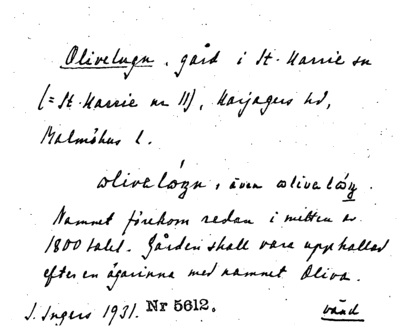 Olivelugn, gård i St. Harrie sn
(= St. Harrie nr 11), Harjagers hd,
Malmöhus l.
olivelógn, även olivelóg.
Namnet förekom redan i mitten av
1800 talet. Gården skall vara uppkallad
efter en ägarinna med namnet Oliva.
J. Ingers 1931. Nr 5612. vänd